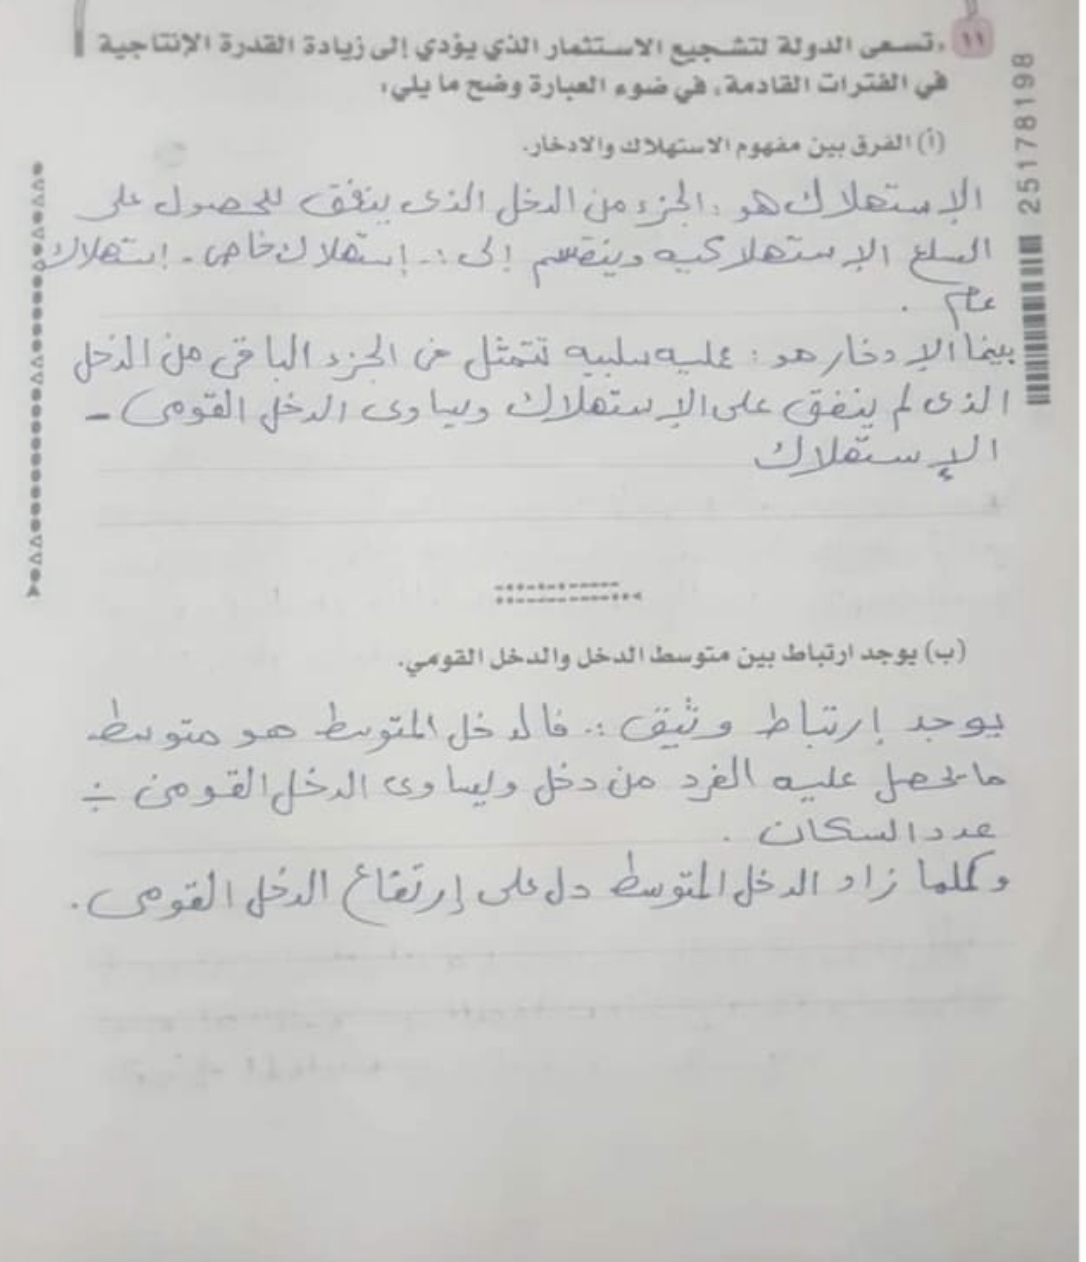 ١١ «تسعى الدولة لتشجيع الاستثمار الذي يؤدي إلى زيادة القدرة الإنتاجية
في الفترات القادمة، في ضوء العبارة وضح ما يلي:
(أ) الفرق بين مفهوم الاستهلاك والادخار.
الإستهلاك هو : الجزء من الدخل الذى ينفق للحصول على
السلع الإستهلاكيه وينقسم إلى :- إستهلاك خاص - إستهلاك
عام .
بينما الإدخار هو : عمليه سلبيه تتمثل فى الجزء الباقى من الدخل
الذى لم ينفق على الإستهلاك ويساوى الدخل القومى -
الإستهلاك
(ب) يوجد ارتباط بين متوسط الدخل والدخل القومي.
يوجد إرتباط وثيق :. فالدخل المتوسط هو متوسط
ما يحصل عليه الفرد من دخل ويساوى الدخل القومى ÷
عدد السكان .
وكلما زاد الدخل المتوسط دل على إرتفاع الدخل القومى .
25178198